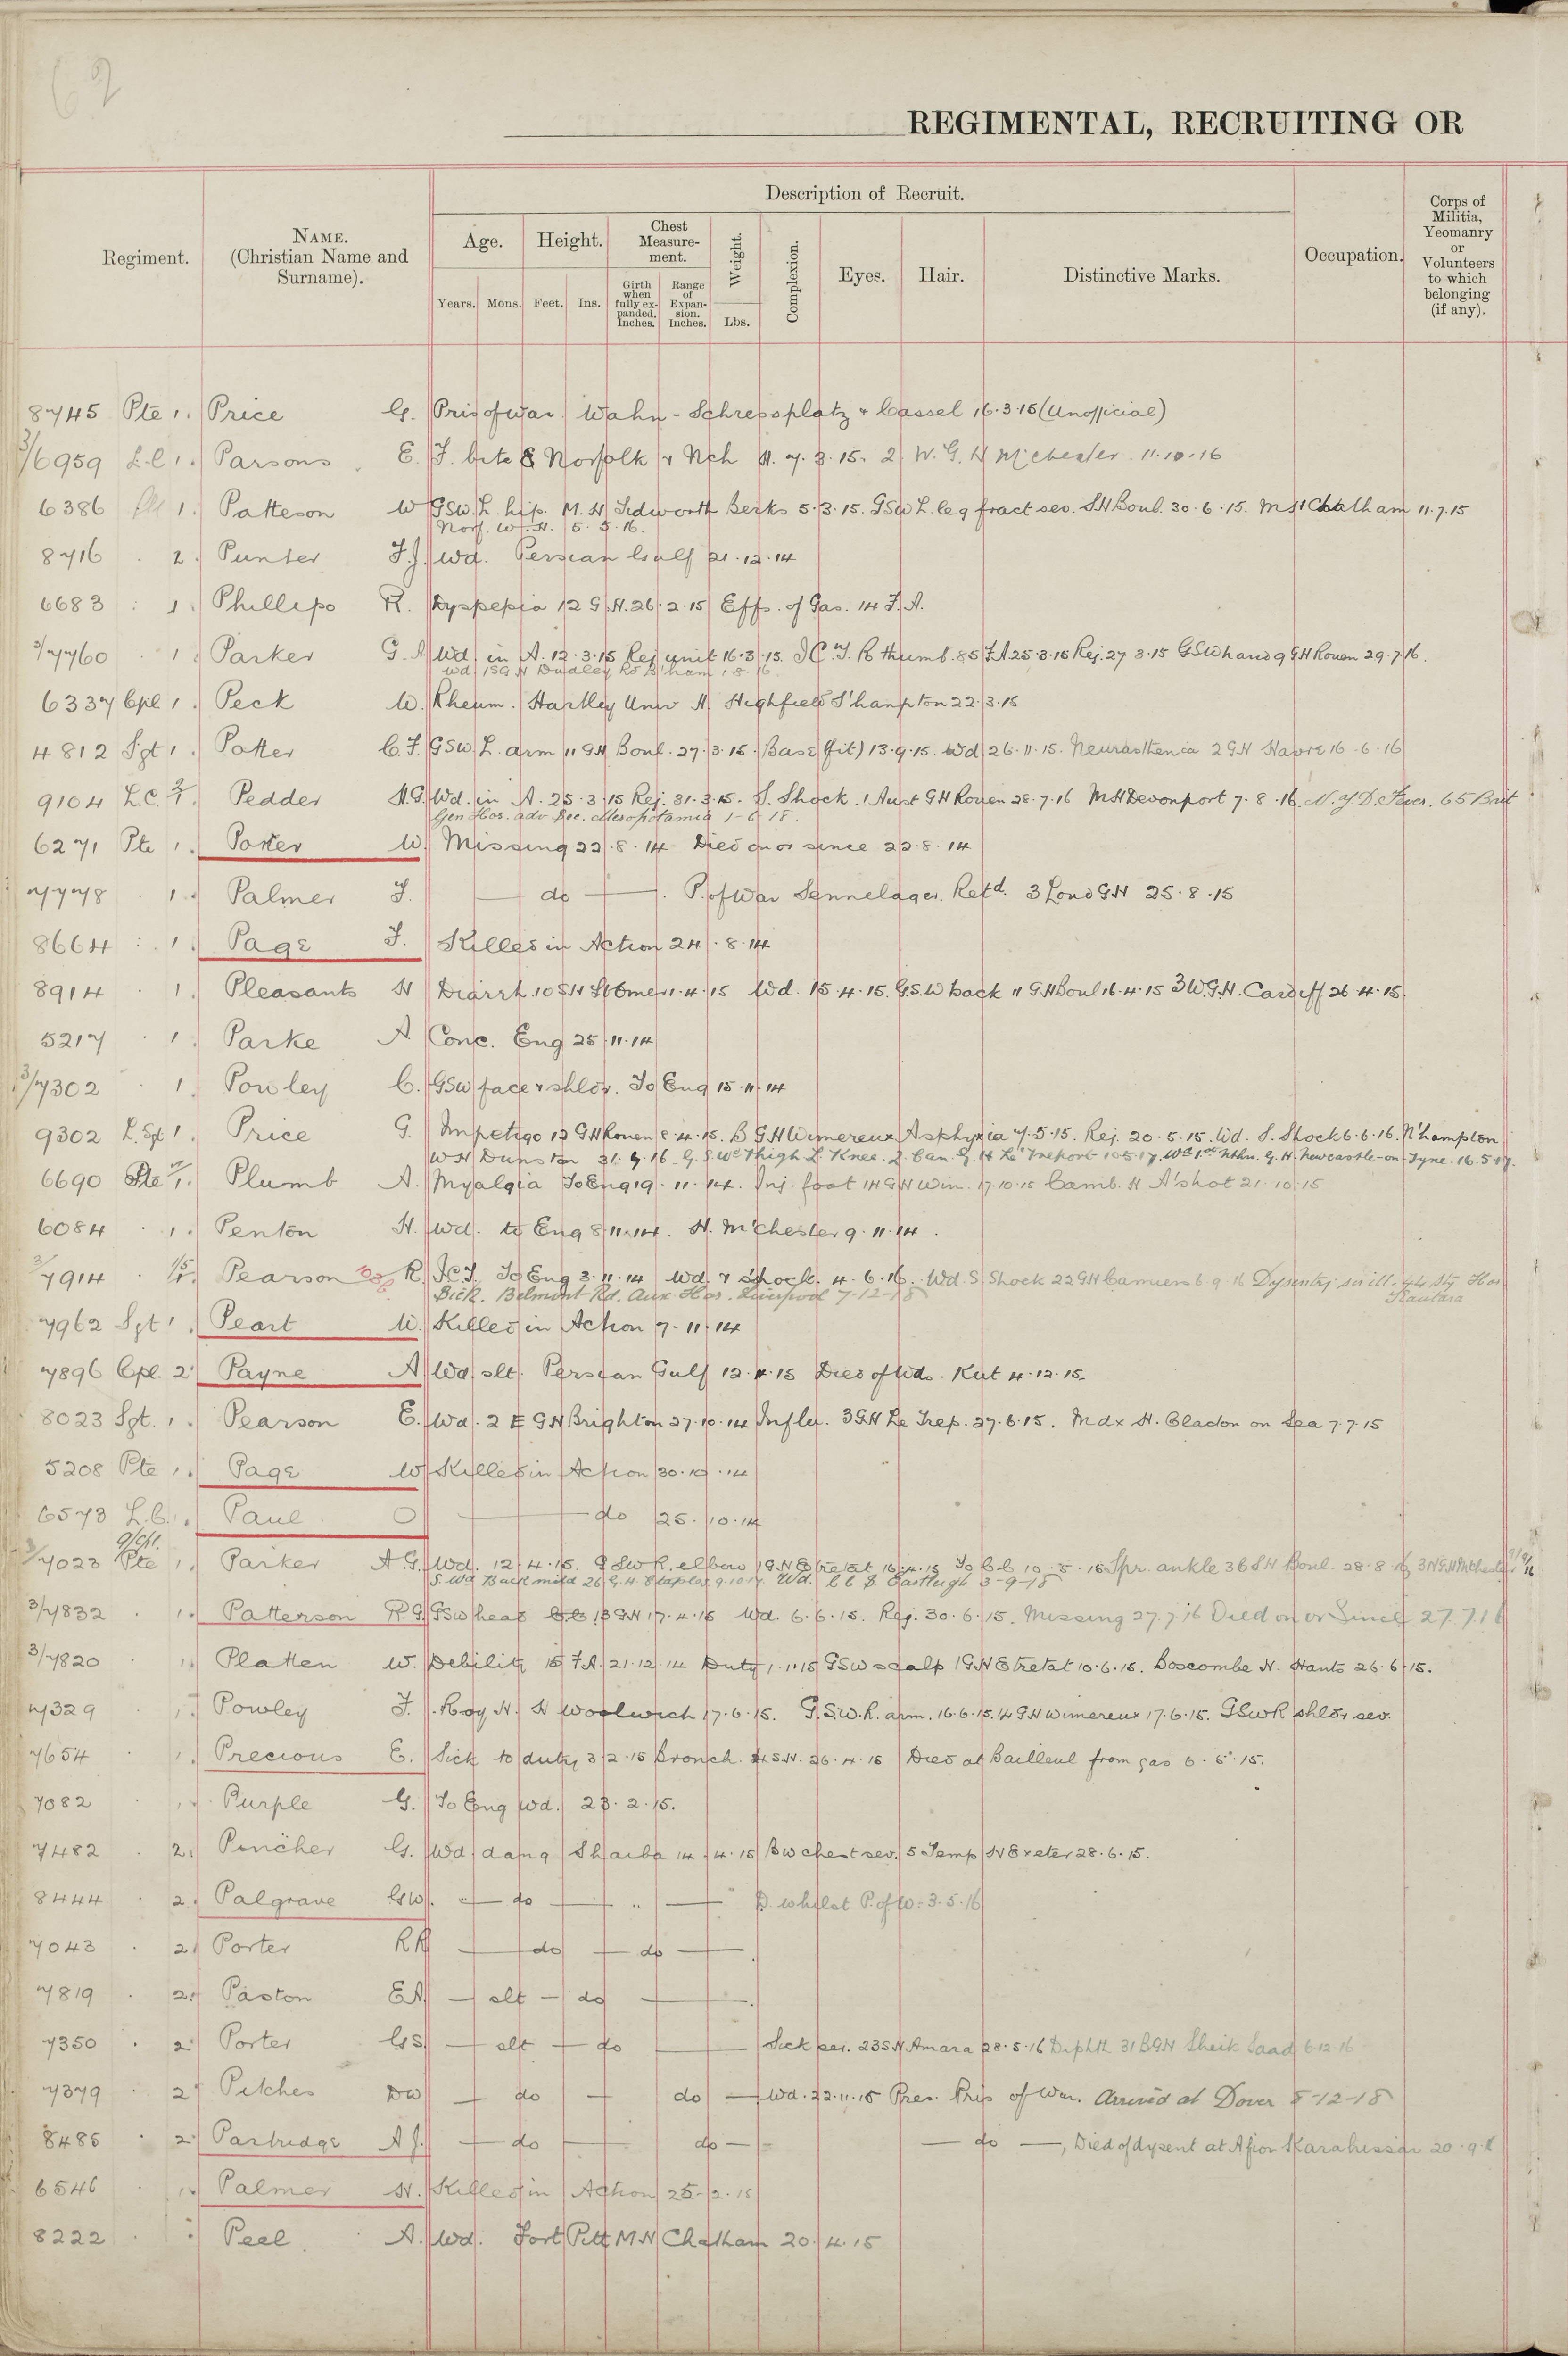 62
REGIMENTAL, RECRUITING OR
Regiment.
NAME.
(Christian Name and
Surname).
Description of Recruit.
Age.
Years. Mons.
Height.
Feet. Ins.
Chest
Measure-
ment.
Girth
when
fully ex-
panded.
Inches.
Range
of
Expan-
sion.
Inches.
Weight.
Lbs.
Complexion.
Eyes.
Hair.
Distinctive Marks.
Occupation.
Corps of
Militia,
Yeomanry
or
Volunteers
to which
belonging
(if any).
8745 Pte 1. Price G. Pris of war. Wahn - Schressplatz & Cassel 16.3.15 (Unofficial)
3/6959 L.C 1. Parsons E. F. bite & Norfolk & Nch H. 7.3.15. 2 W. G. H M'chester. 11.10.16
6386 1. Patteson W GSW. L. hip. M. H Tidworth Berks 5.3.15. GSW L. leg fract sev. SH Boul. 30.6.15. M.H Chatham 11.7.15
Norf. W. H. 5.5.16.
8716 . 2. Punter F.J. Wd. Persian Gulf 21.12.14
6683 : 1. Phillipo R. Dyspepsia 12 G.H. 26.2.15 Effs. of Gas. 14 F. A.
3/7760 . 1. Parker G. A Wd. in A. 12.3.15 Rej unit 16.3.15. I C. T. R thumb. 85 F.A 25.3.15 Rej. 27.3.15 GSW hand 9 GH Rouen 29.7.16.
Wd. 1 S G H Dudley Rd B'ham 1.8.16.
6337 Cpl 1. Peck W. Rheum. Hartley Univ H. Highfield S'hampton 22.3.15
4812 Sgt 1. Potter C. F. GSW L. arm 11 GH Boul. 27.3.15. Base (fit) 13.9.15. Wd 26.11.15. Neurasthenia 2 GH Havre 16.6.16
9104 L.C. 2/1. Pedder H.G. Wd. in A. 25.3.15 Rej. 31.3.15. S. Shock. 1 Aust GH Rouen 28.7.16 MH Devonport 7.8.16. N.Y.D. Fever. 65 Brit
Gen Hos. adv Sec. Mesopotamia 1-6-18.
6271 Pte 1. Porter W. Missing 22.8.14 Died on or since 22.8.14
7778 . 1. Palmer F. — do — . P. of War Sennelager. Retd. 3 Lond GH 25.8.15
8664 : 1. Page F. Killed in Action 24.8.14
8914 . 1. Pleasants H Diarrh. 10 SH St Omer 1.4.15 Wd. 15.4.15. G.S.W back 11 GH Boul 16.4.15 3 W.G.H. Cardiff 26.4.15
5217 . 1. Parke A. Conc. Eng 25.11.14
3/7302 1. Powley C. GSW face & shldr. To Eng 15.11.14
9302 L. Sgt 1. Price G. Impetigo 12 GH Rouen 8.4.15. B GH Wimereux Asphyxia 7.5.15. Rej. 20.5.15. Wd. S. Shock 6.6.16. N'hampton
WH Dunston 31.7.16 G.S. Wd Thigh L. Knee. 2 Can. G. H Le Treport 10.5.17. Wd 1st Nthn. G. H. Newcastle-on-Tyne. 16.5.17.
6690 Pte 2/1. Plumb A. Myalgia To Eng 19.11.14. Inj. foot 14 GH Wim. 17.10.15 Camb. H A'shot 21.10.15
6084 . 1. Penton H. Wd. to Eng 8.11.14. H. M'chester 9.11.14.
3/7914 . 1/5 1. Pearson R. I.C.T. To Eng 3.11.14 Wd. & shock. 4.6.16. Wd S Shock 22 GH Camiers 6.9.16 Dysentry ser ill. 44 Sty Hos
Kantara
Sick. Belmont Rd. Aux. Hos. Liverpool 7-12-18
7962 Sgt 1. Peart W. Killed in Action 7.11.14
7896 Cpl. 2 Payne A Wd. slt. Persian Gulf 12.4.15 Died of Wds. Kut 4.12.15.
8023 Sgt. 1. Pearson E. Wd. 2 E GH Brighton 27.10.14 Influ. 3 GH Le Trep. 27.6.15. Mdx H. Clacton on Sea 7.7.15
5208 Pte 1. Page W Killed in Action 30.10.14
6573 L.C. 1. Paul O — do 25.10.14
3/7023 a/Cpl. Pte 1. Parker A.G. Wd. 12.4.15. GSW R. elbow 1 G.H Etretat 16.4.15 To 10.5.15 Spr. ankle 36 SH Boul. 28.8.16
S. Wd Back mild 26 G. H. Etaples 9.10.17. Wd. C C S. Eastleigh 3-9-18
3/7832 . 1. Patterson R.G. GSW head 13 GH 17.4.15 Wd. 6.6.15. Rej. 30.6.15. Missing 27.7.16 Died on or Since 27.7.16
3/7820 . 1. Platten W. Debility 15 F.A. 21.12.14 Duty 1.1.15 GSW scalp 1 G.H Etretat 10.6.15. Boscombe H. Hants 26.6.15.
7329 1. Powley F. Roy H. H Woolwich 17.6.15. G.S.W. R. arm. 16.6.15. 14 GH Wimereux 17.6.15. GSW R shldr sev.
7654 . 1. Precious E. Sick to duty 3.2.15 Bronch. 26.4.15 Died at Bailleul from gas 6.5.15.
7082 . 1. Purple G. To Eng Wd. 23.2.15.
7482 . 2. Pincher G. Wd dang Shaiba 14.4.15 Bw chest sev. 5 Temp H Exeter 28.6.15.
8444 . 2. Palgrave GW. — do — " — " D. whilst P. of W. 3.5.16
7043 . 2. Porter RR — do — do — .
7819 . 2. Paston EA. — slt — do — .
7350 . 2 Porter GS. — slt — do — Sick ser. 23 S.H Amara 28.5.16 Diphth 31 BGH Sheik Saad 6.12.16
7379 . 2 Pilches DW — do — do — Wd. 22.11.15 Pres. Pris of War. Arrived at Dover 8-12-18
8485 . 2 Partridge A J. — do — do — — do —, Died of dysent at Afion Karahissar 20.9.1
6546 . 1. Palmer H. Killed in Action 25.2.15
8222 . : Peel A. Wd. Fort Pitt MH Chatham 20.4.15